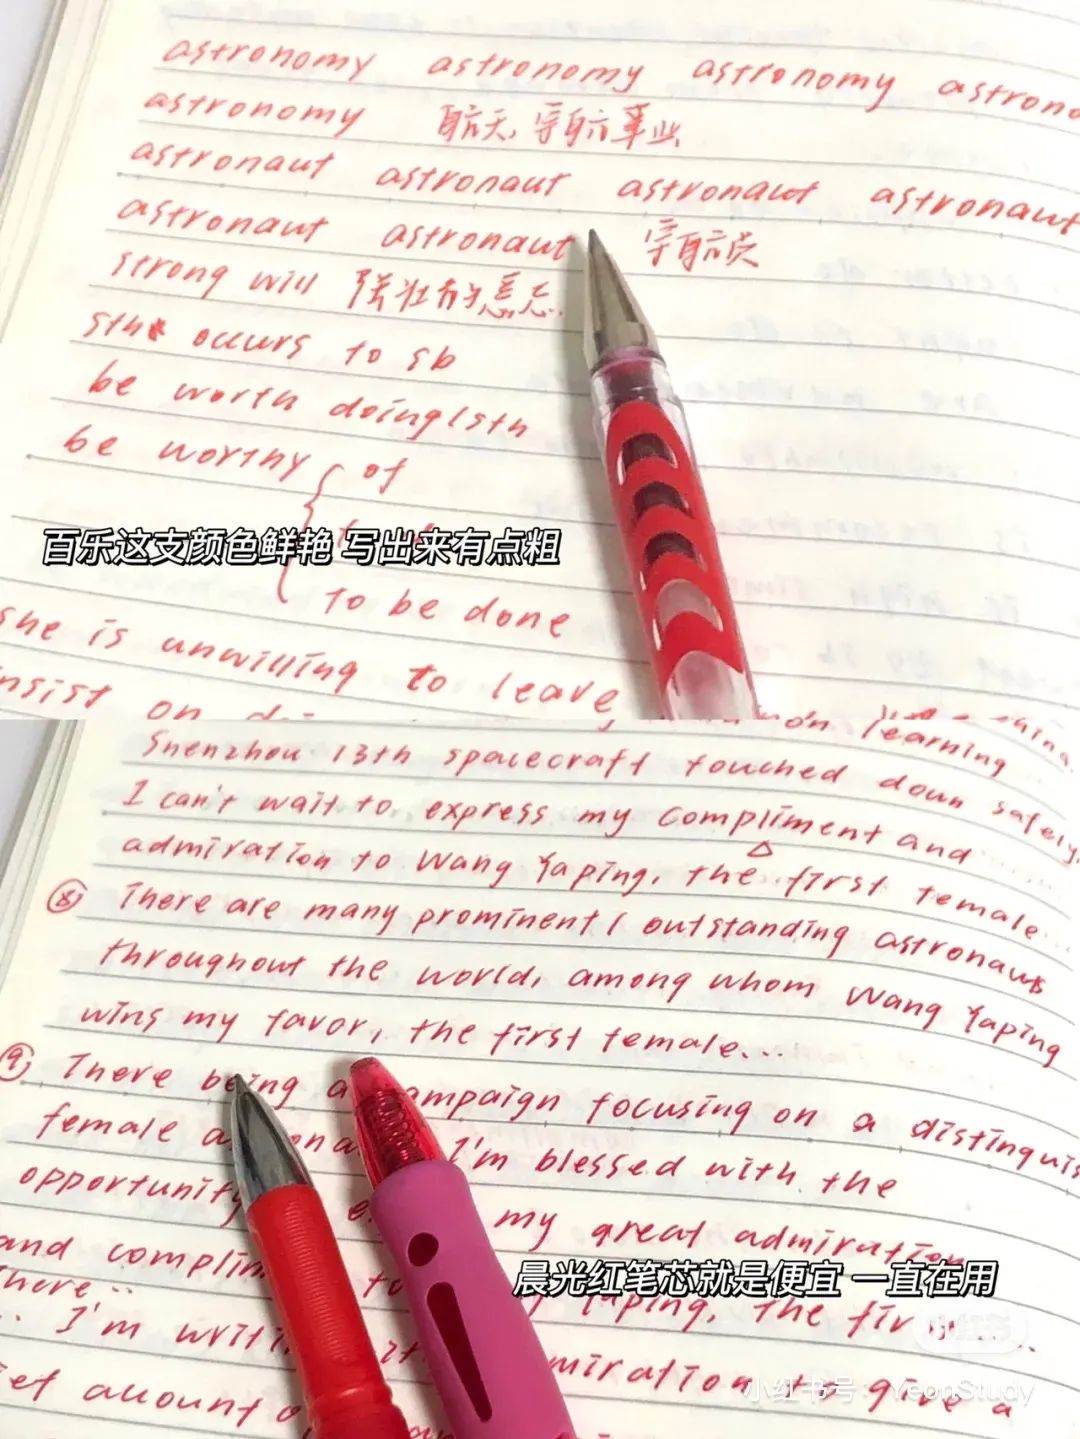 astronomy astronomy astronomy astrono
astronomy 航天，宇航事业
astronaut astronaut astronaut astronaut
astronaut astronaut 宇航员
strong will 强壮的意志.
sth occurs to sb
be worth doing/sth
be worthy { of
百乐这支颜色鲜艳 写出来有点粗
to be done
she is unwilling to leave
insist on learning
Shenzhou 13th spacecraft touched down safely.
I can't wait to express my compliment and
admiration to Wang Yaping, the first female...
⑧ There are many prominent / outstanding astronauts
throughout the world, among whom Wang Yaping
wins my favor, the first female...
⑨ There being a campaign focusing on a distinguis
female I'm blessed with the
opportunity my great admiration
晨光红笔芯就是便宜 一直在用
and to Yaping, the
there..
.. I'm
to give a
小红书
小红书号：YeonStudy